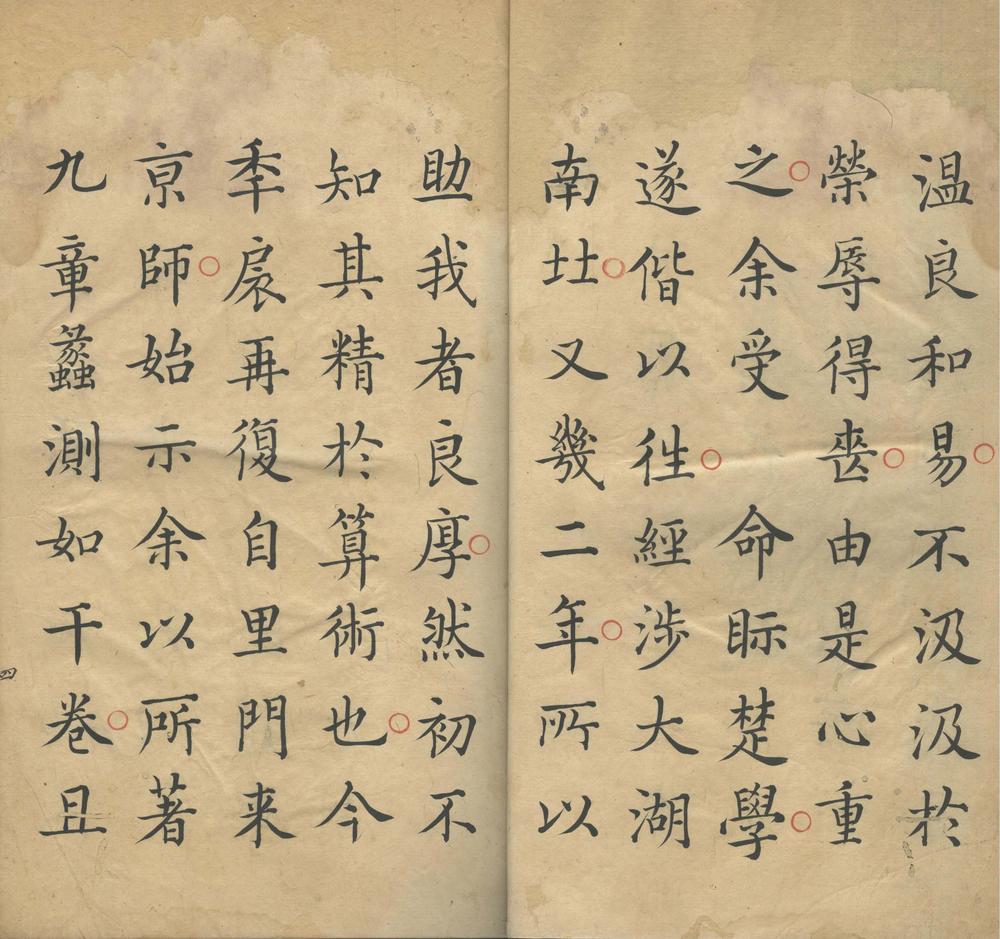 温良和易○不汲汲於
榮辱得喪○由是心重
之○余受命眎楚學○
遂偕以徃○經涉大湖
南北○又幾二年○所以
助我者良厚○然初不
知其精於算術也○今
季扆再復自里門来
京師○始示余以所著
九章蠡測如干卷○且
四